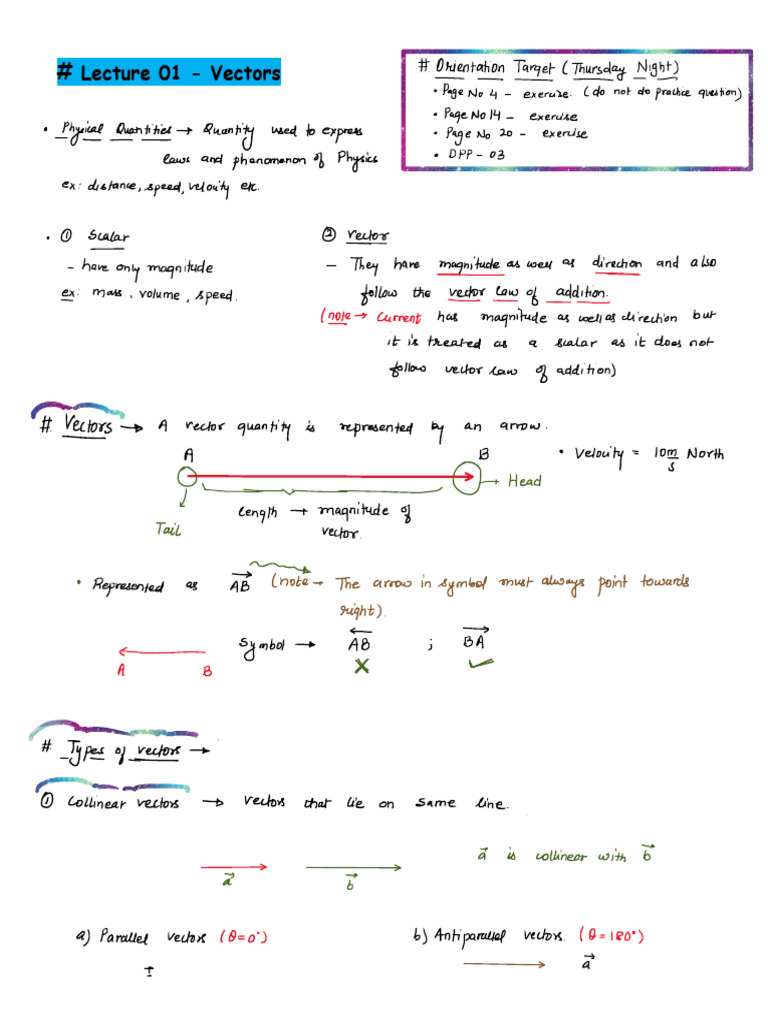 # Lecture 01 - Vectors
# Orientation Target (Thursday Night)
• Page No 4 - exercise. (do not do practice question)
• Page No 14 - exercise
• Page No 20 - exercise
• DPP - 03
• Physical Quantities → Quantity used to express
laws and phenomenon of Physics
ex: distance, speed, velocity etc.
• ① Scalar
- have only magnitude
ex: mass, volume, speed.
② Vector
- They have magnitude as well as direction and also
follow the vector law of addition.
(note → Current has magnitude as well as direction but
it is treated as a scalar as it does not
follow vector law of addition)
# Vectors → A vector quantity is represented by an arrow.
A B
• Velocity = 10 m/s North
Head
Length → magnitude of
vector.
Tail
• Represented as \overrightarrow{AB} (note → The arrow in symbol must always point towards
right).
Symbol → \overleftarrow{AB} ; \overrightarrow{BA}
A B
X ✓
# Types of vectors →
① Collinear vectors → vectors that lie on same line.
\vec{a} is collinear with \vec{b}
\vec{a} \vec{b}
a) Parallel vectors (θ=0°)
b) Antiparallel vectors. (θ=180°)
\vec{a}